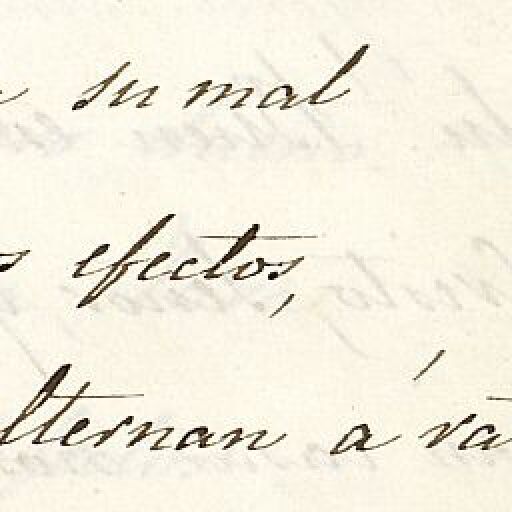 su mal
efectos,
alternan á